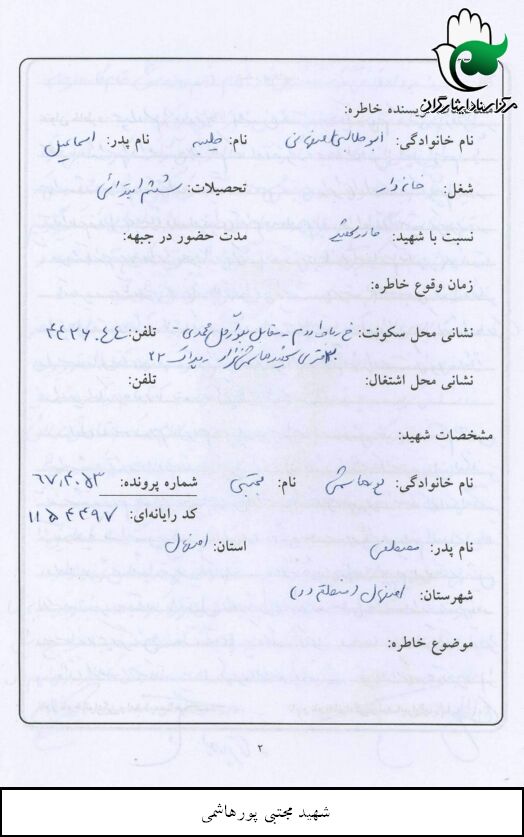 مرکز اسناد ایثارگران
مشخصات نویسنده خاطره:
نام خانوادگی: ابوطالبی اصفهانی نام: طیبه نام پدر: اسماعیل
شغل: خانه دار تحصیلات: ششم ابتدائی
نسبت با شهید: مادر مدت حضور در جبهه:
زمان وقوع خاطره:
نشانی محل سکونت: خ زمقابل تلفن:
پلاک ۲۲
نشانی محل اشتغال: تلفن:
مشخصات شهید:
نام خانوادگی: پورهاشمی نام: مجتبی شماره پرونده: ۶۷,۴۰۵۳
کد رایانه‌ای: ۱۱۵۴۴۹۷
نام پدر: مصطفی استان: اصفهان
شهرستان: اصفهان
موضوع خاطره:
۲
شهید مجتبی پورهاشمی